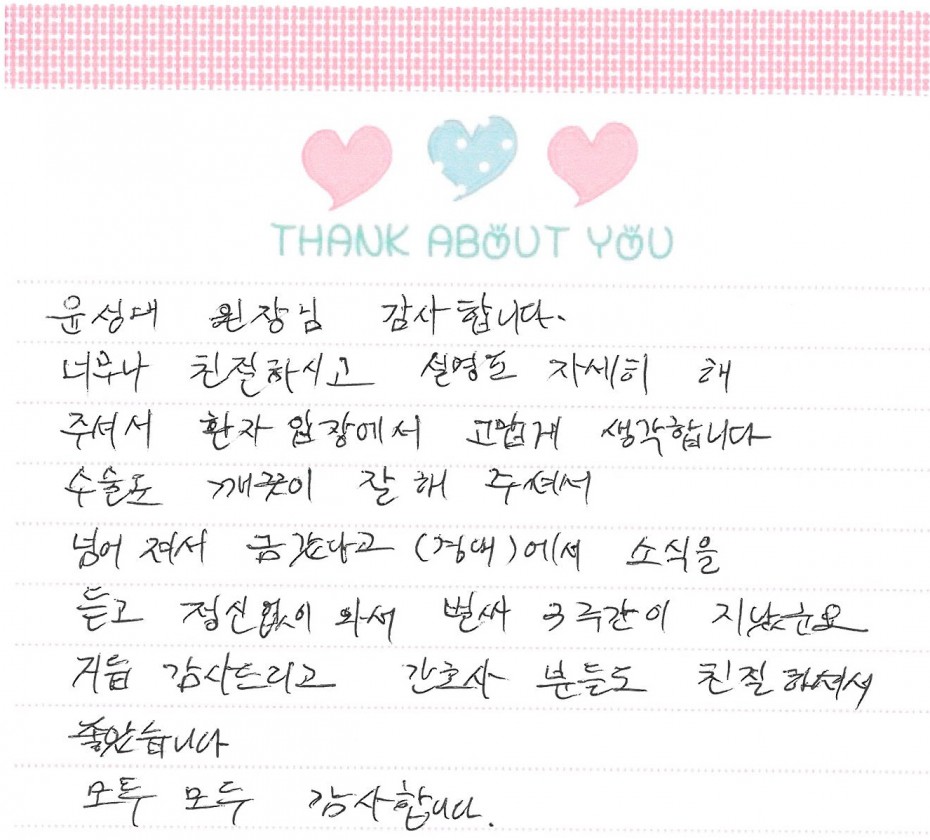 THANK ABOUT YOU
윤성대 원장님 감사합니다.
너무나 친절하시고 설명도 자세히 해
주셔서 환자 입장에서 고맙게 생각합니다
수술도 깨끗이 잘 해 주셔서
넘어 져서 금갔다고 (경대)에서 소식을
듣고 정신없이 와서 벌써 3주간이 지났군요
거듭 감사드리고 간호사 분들도 친절하셔서
좋았습니다
모두 모두 감사합니다.